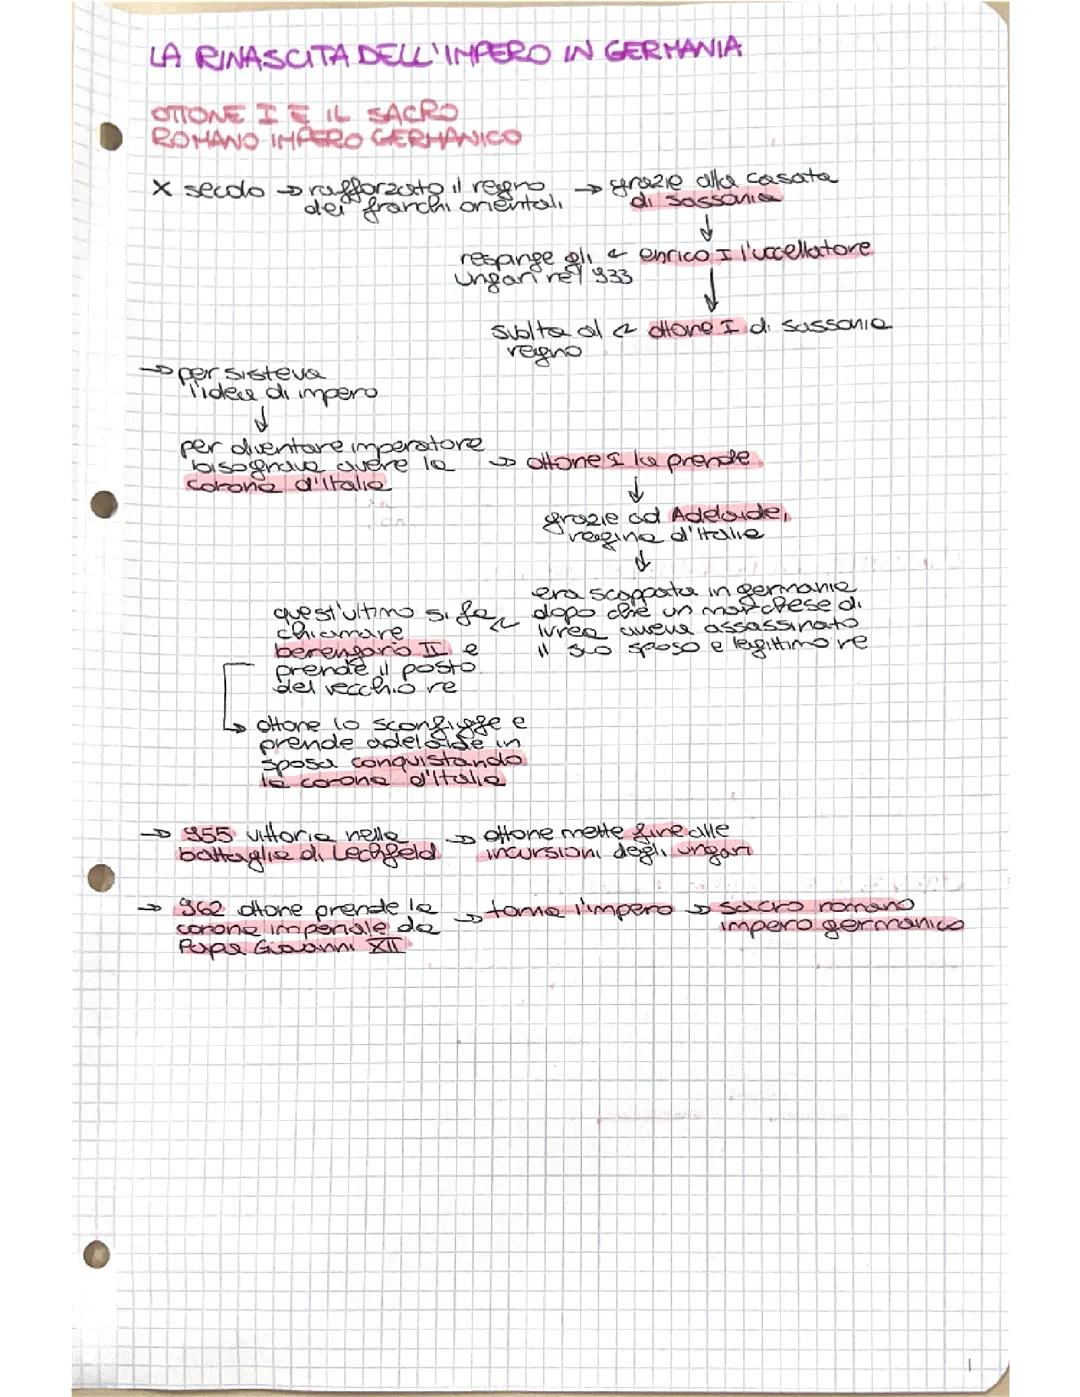 LA RINASCITA DELL'IMPERO IN GERMANIA
OTTONE I E IL SACRO
ROMANO IMPERO GERMANICO
X secolo → rafforzato il regno → grazie alla casata
dei franchi orientali di sassonia
↓
respinge gli ← enrico I l'uccellatore
ungari nel 933
↓
subito al ← ottone I di sassonia
regno
→ persisteva
l'idea di impero
↓
per diventare imperatore
bisognava avere la → ottone I la prende
corona d'Italia
↓
grazie ad Adelaide,
regina d'Italia
↓
era scappata in germania
dopo che un marchese di
ivrea aveva assassinato
il suo sposo e legittimo re
quest'ultimo si fa ←
chiamare
berengario II e
prende il posto
del vecchio re
→ ottone lo sconfigge e
prende adelaide in
sposa conquistando
la corona d'Italia
→ 955 vittoria nella → ottone mette fine alle
battaglia di Lechfeld incursioni degli ungari
→ 962 ottone prende la → torna l'impero → sacro romano
corona imperiale da impero germanico
Papa Giovanni XII
1